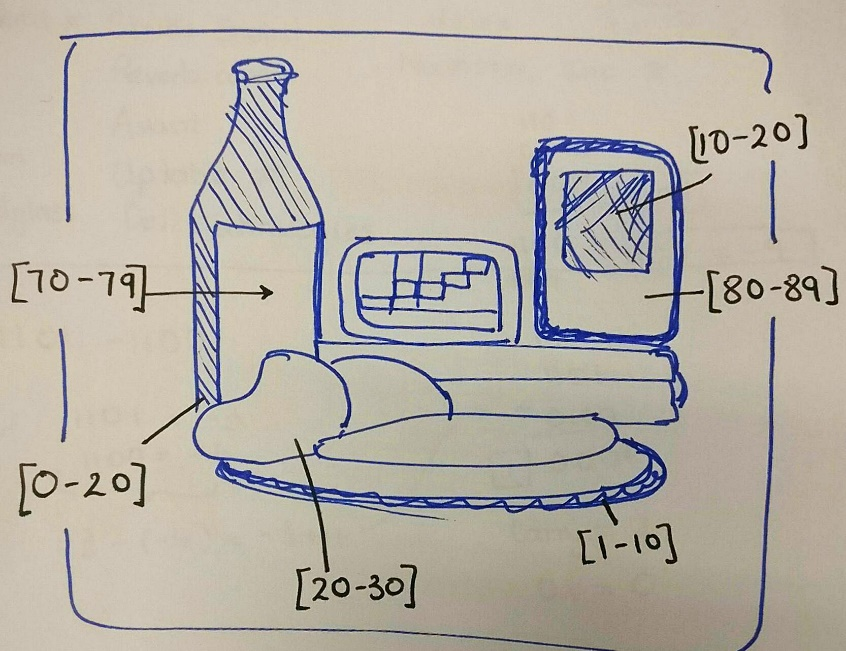 [10-20]
[70-79]
[80-89]
[0-20]
[1-10]
[20-30]